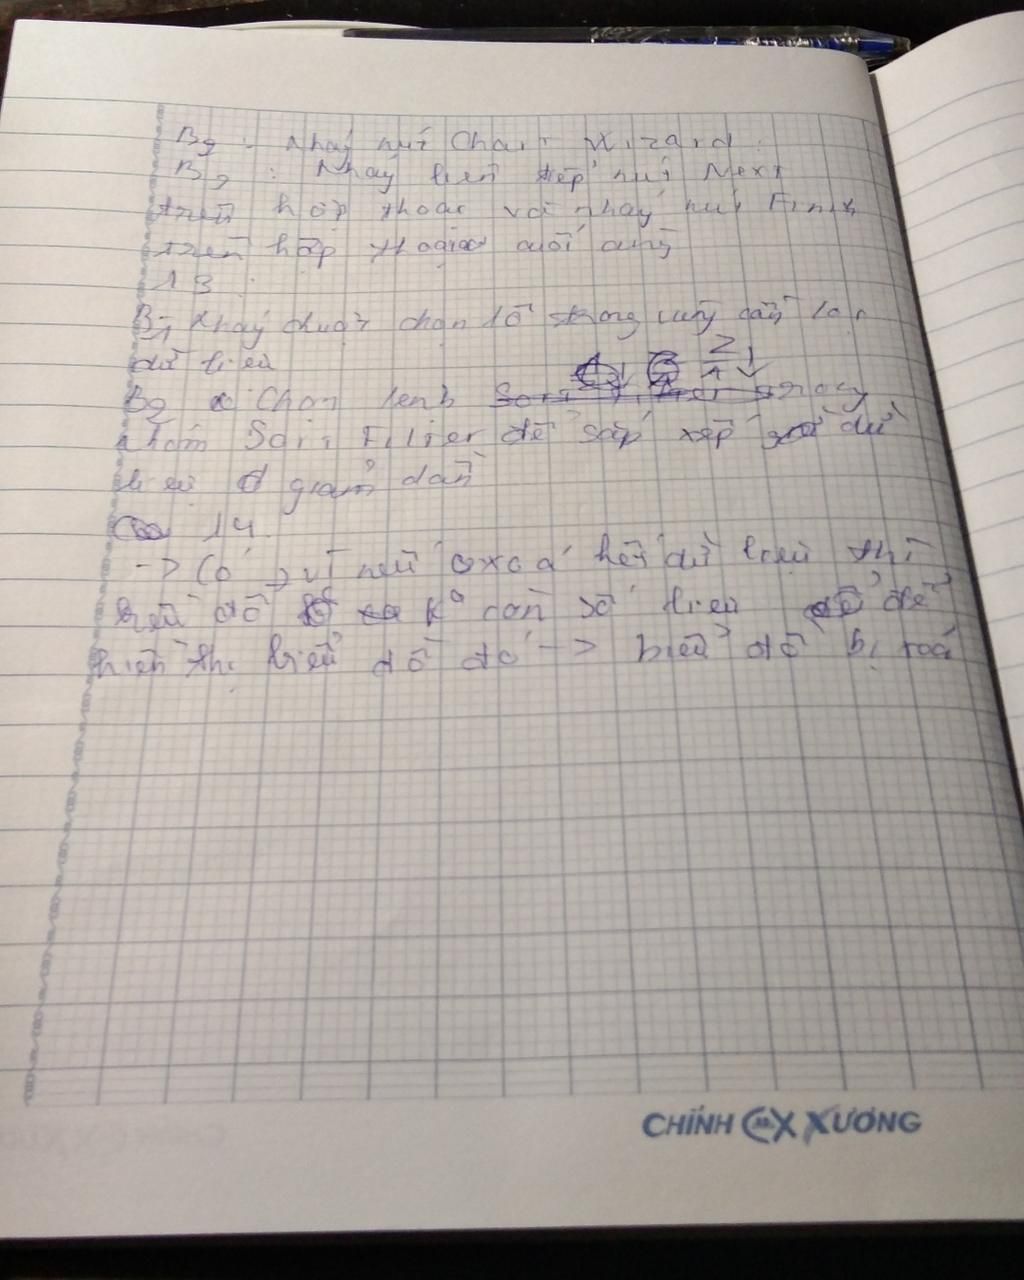 B2: Nháy nút Chart Wizard.
B3: Nháy liên tiếp nút Next
trên hộp thoại và nháy nút Finish
trên hộp thoại cuối cùng
13:
B1 Nháy chuột chọn 1 ô trong cần lọc
dữ liệu
B2 Chọn lệnh Z A trong
nhóm Sort Filter để sắp xếp dữ
liệu giảm dần
Câu 14
-> Có, vì nếu xoá hết dữ liệu thì
biểu đồ k° còn số liệu để
hiển thị biểu đồ đó -> biểu đồ bị xoá
CHÍNH XƯƠNG